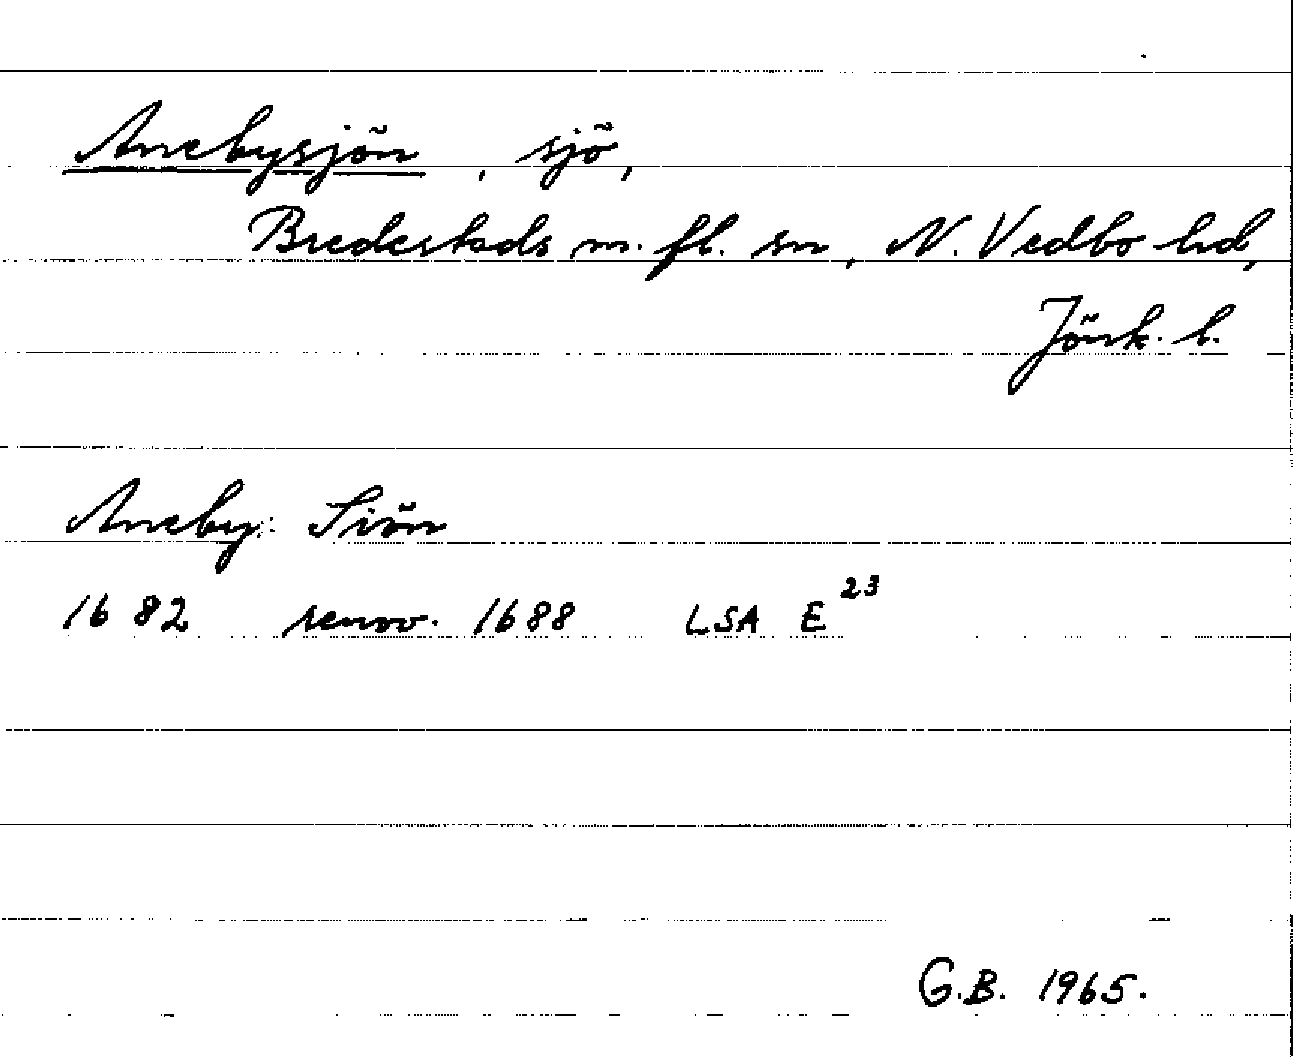 Anebysjön, sjö,
Bredestads m. fl. sn, N. Vedbo hd,
Jönk. l.
Aneby: Siön
1682 renov. 1688 LSA E²³
G.B. 1965.